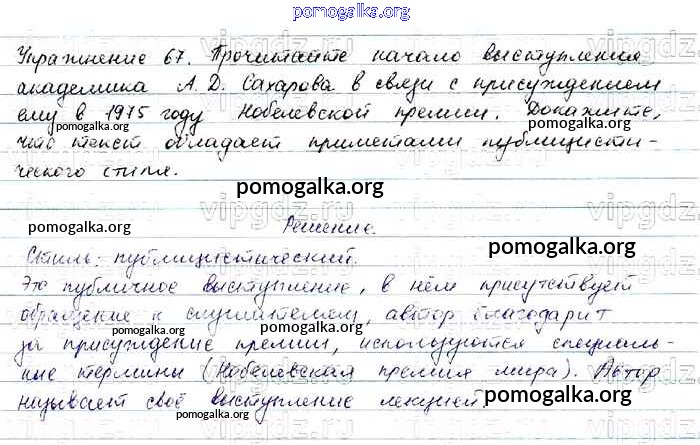 pomogalka.org
Упражнение 67. Прочитайте начало выступления
академика А. Д. Сахарова в связи с присуждением
ему в 1975 году Нобелевской премии. Докажите,
pomogalka.org
pomogalka.org
что текст обладает приметами публицисти-
ческого стиля.
pomogalka.org
pomogalka.org
Решение.
pomogalka.org
Стиль: публицистический.
Это публичное выступление, в нём присутствует
обращение к слушателям, автор благодарит
pomogalka.org
pomogalka.org
за присуждение премии, используются специаль-
ные термины (Нобелевская премия мира). Автор
pomogalka.org
pomogalka.org
называет своё выступление лекцией.
pomogalka.org